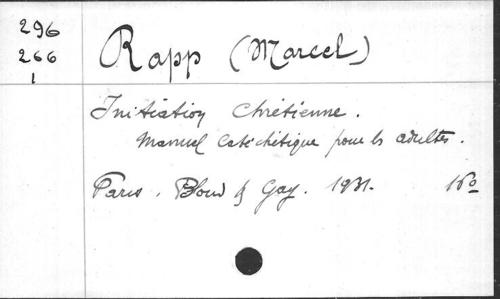 296
266
1
Rapp (Marcel)
Initiation Chrétienne.
Manuel Catéchétique pour les adultes.
Paris. Bloud & Gay. 1931. 16o